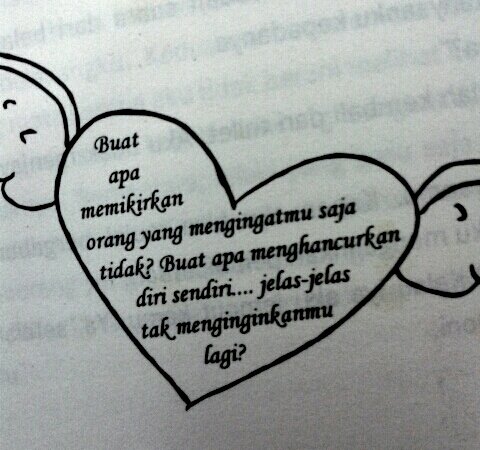 Buat
apa
memikirkan
orang yang mengingatmu saja
tidak? Buat apa menghancurkan
diri sendiri.... jelas-jelas
tak menginginkanmu
lagi?